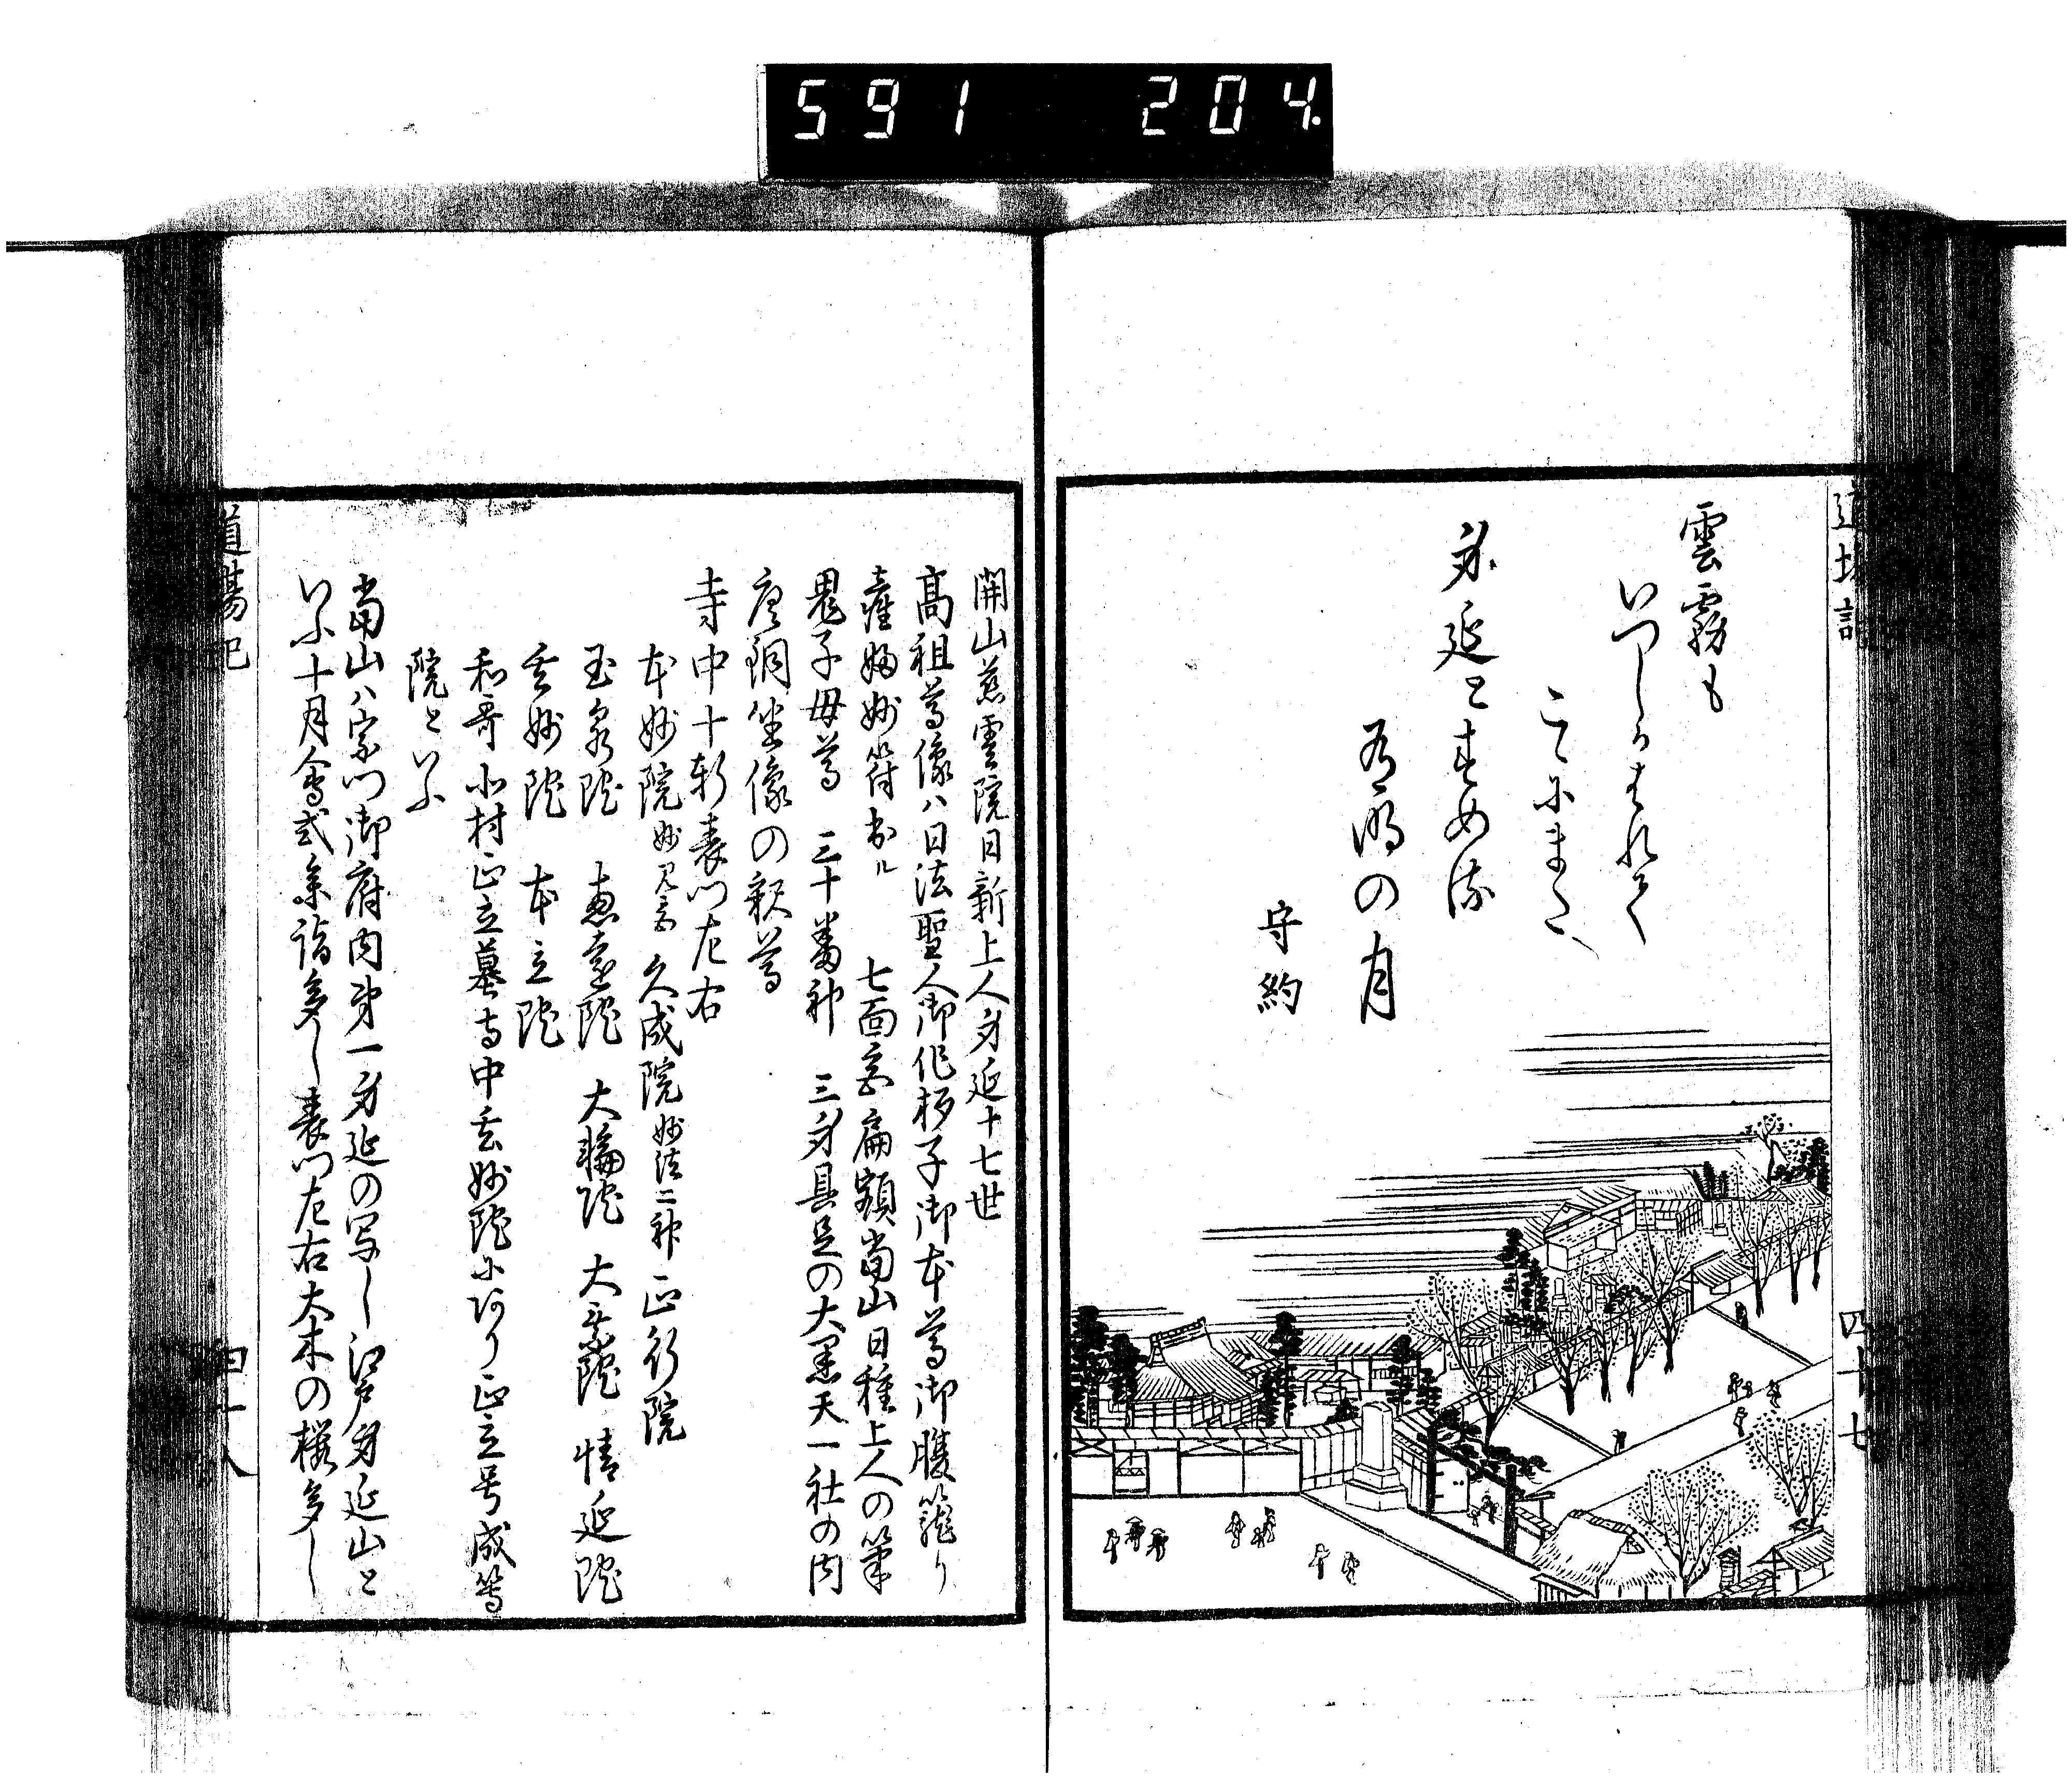 591 204
道場記
雲霧も
いつしかはれて
こゝにまた
身延とすめる
有明の月
守約
四十七
開山慈雲院日新上人身延十七世
高祖尊像ハ日法聖人御作 御本尊御腹籠り
産婦妙符出ル 七面宮扁額当山日種上人の筆
鬼子母尊 三十番神 三身具足の大黒天一社の内
唐銅坐像の釈尊
寺中十軒表門左右
本妙院妙見宮 久成院妙法二神 正行院
玉泉院 恵雲院 大輪院 大乗院 情延院
玄妙院 本立院
和哥 小村正立墓寺中玄妙院にあり正立号成等
院といふ
当山ハ宗門御府内第一身延の写し江戸身延山と
いふ十月会式参詣多し表門左右大木の桜多し
道場記
四十八